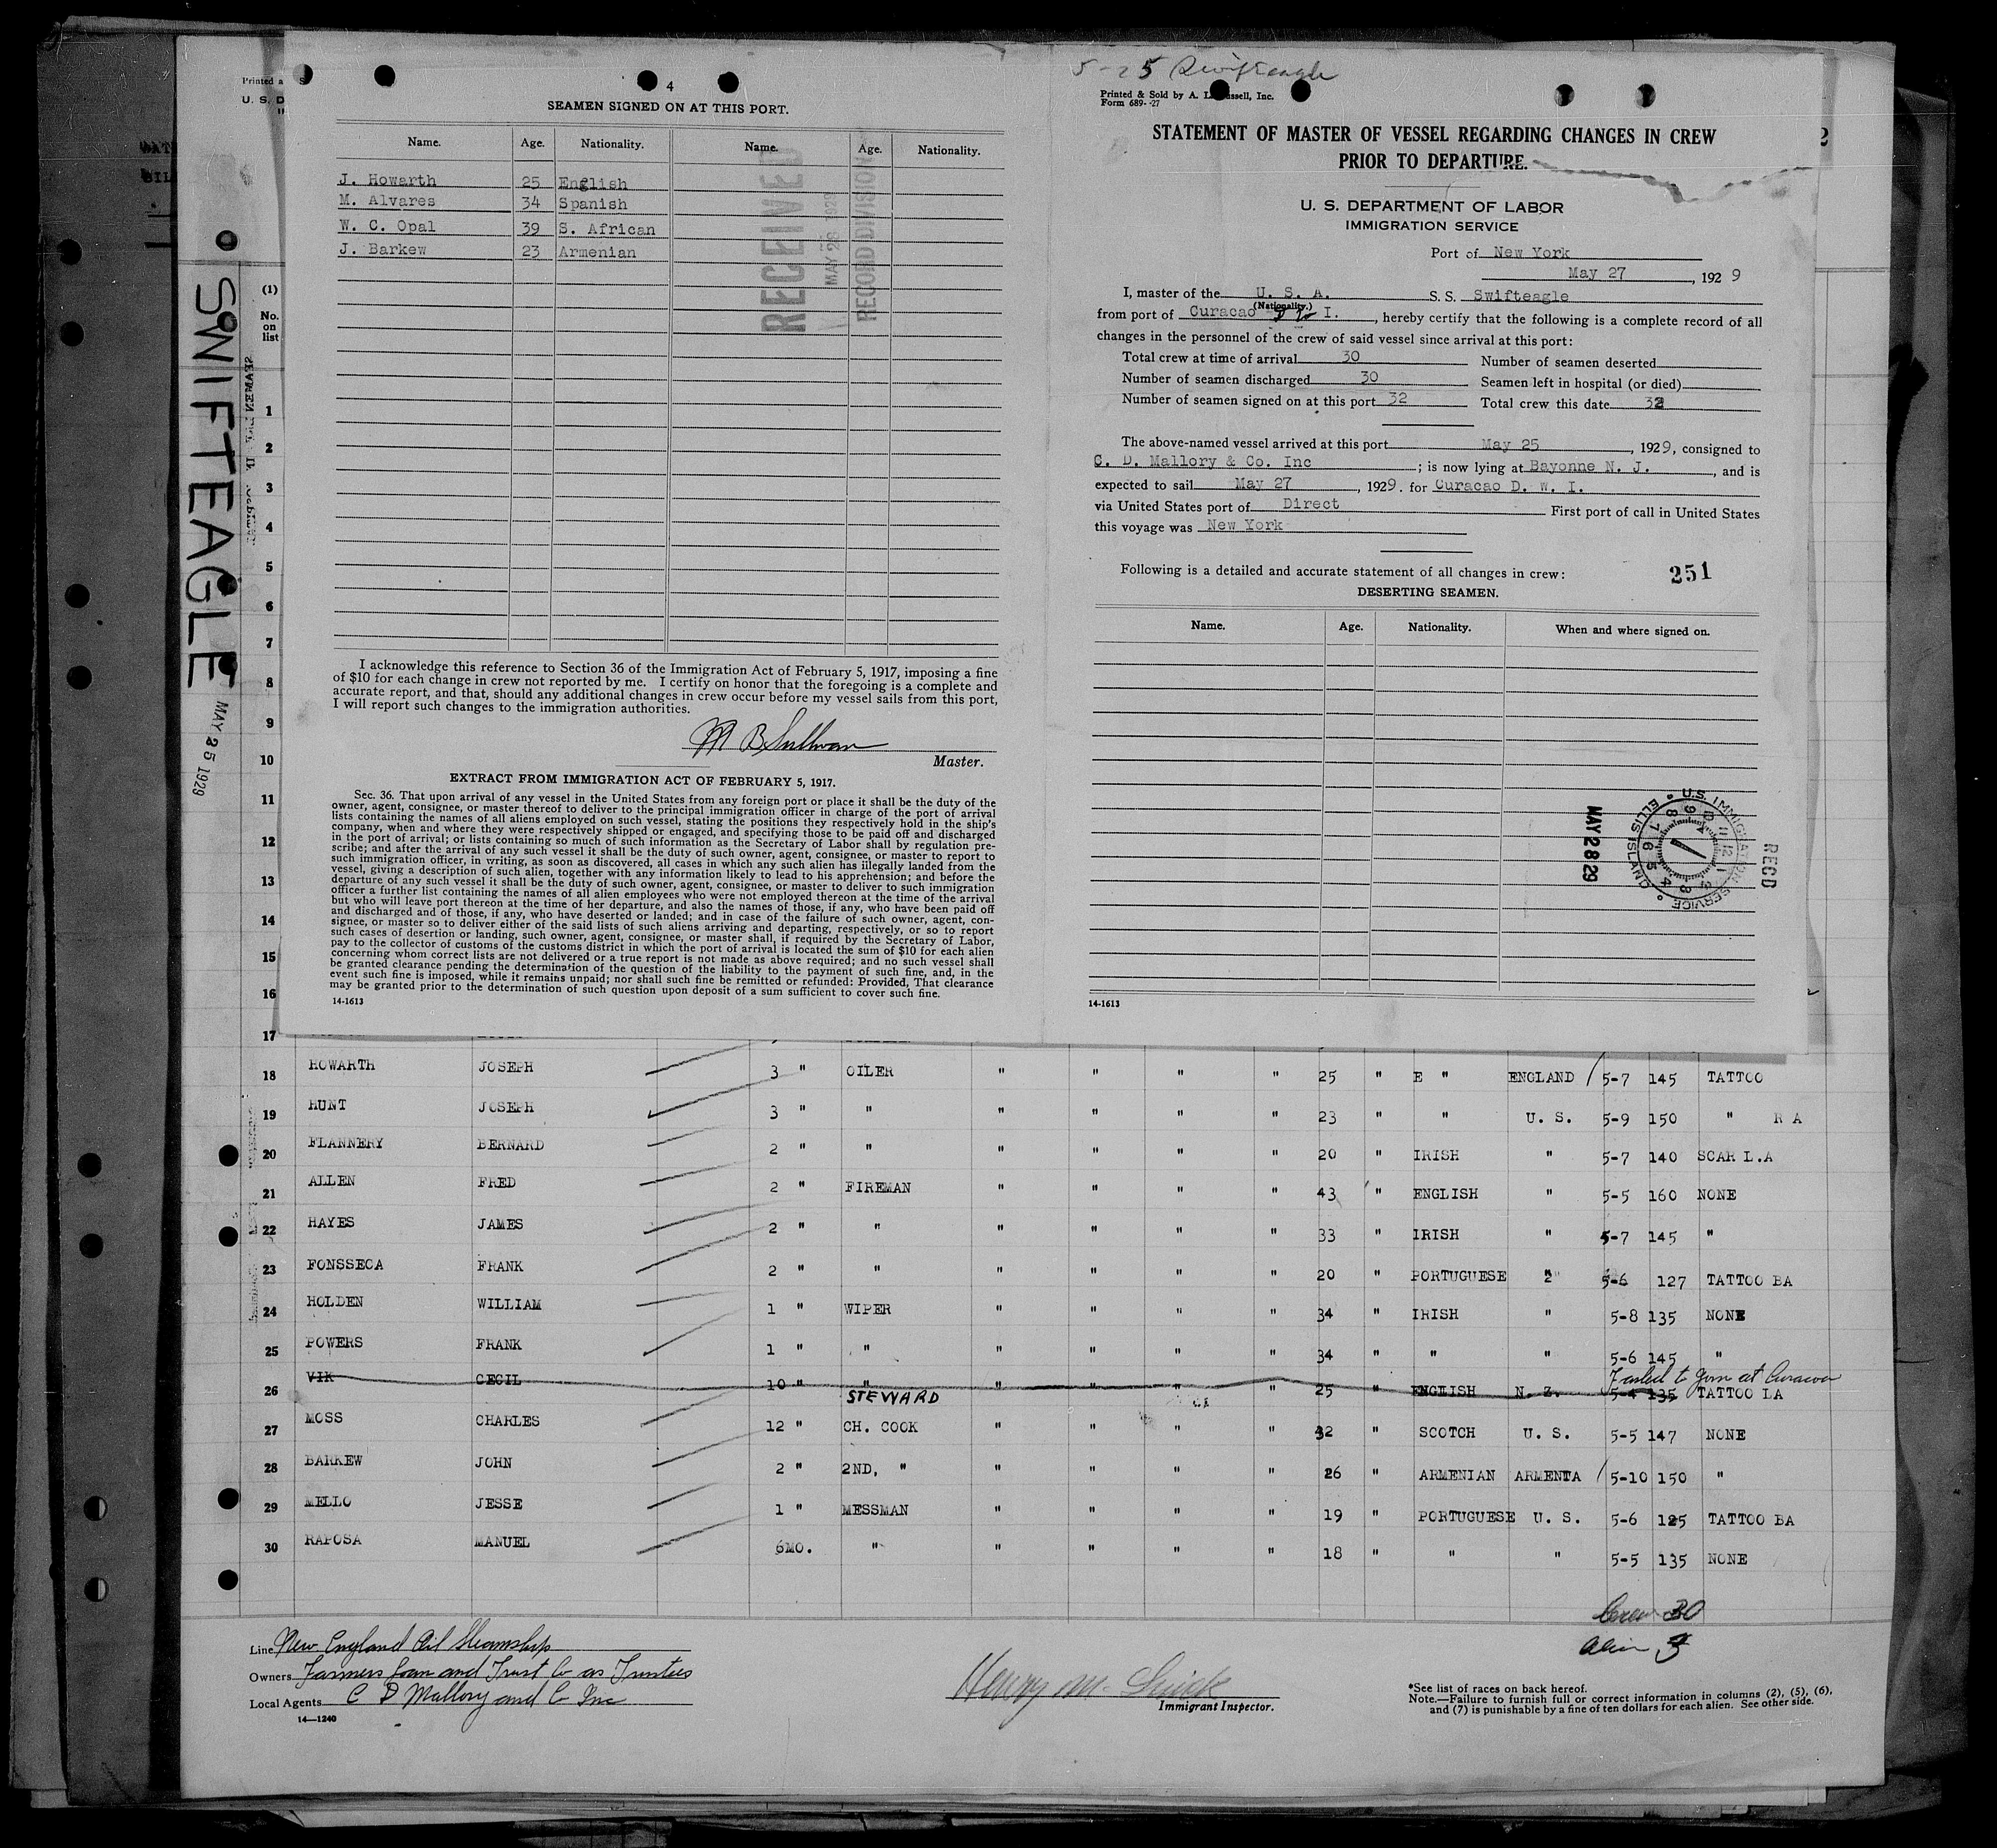 5-25 Swifteagle
Printed a
U. S. D
SWIFTEAGLE
MAY 25 1929
(1)
No.
on
list
1
2
3
4
5
6
7
8
9
10
11
12
13
14
15
16
17
4
SEAMEN SIGNED ON AT THIS PORT.
Name. Age. Nationality. Name. Age. Nationality.
J. Howarth 25 English
M. Alvares 34 Spanish
W. C. Opal 39 S. African
J. Barkew 23 Armenian
RECEIVED
MAY 28 1929
RECORD DIVISION
I acknowledge this reference to Section 36 of the Immigration Act of February 5, 1917, imposing a fine
of $10 for each change in crew not reported by me. I certify on honor that the foregoing is a complete and
accurate report, and that, should any additional changes in crew occur before my vessel sails from this port,
I will report such changes to the immigration authorities.
M B Sullivan
Master.
EXTRACT FROM IMMIGRATION ACT OF FEBRUARY 5, 1917.
Sec. 36. That upon arrival of any vessel in the United States from any foreign port or place it shall be the duty of the
owner, agent, consignee, or master thereof to deliver to the principal immigration officer in charge of the port of arrival
lists containing the names of all aliens employed on such vessel, stating the positions they respectively hold in the ship's
company, when and where they were respectively shipped or engaged, and specifying those to be paid off and discharged
in the port of arrival; or lists containing so much of such information as the Secretary of Labor shall by regulation pre-
scribe; and after the arrival of any such vessel it shall be the duty of such owner, agent, consignee, or master to report to
such immigration officer, in writing, as soon as discovered, all cases in which any such alien has illegally landed from the
vessel, giving a description of such alien, together with any information likely to lead to his apprehension; and before the
departure of any such vessel it shall be the duty of such owner, agent, consignee, or master to deliver to such immigration
officer a further list containing the names of all alien employees who were not employed thereon at the time of the arrival
but who will leave port thereon at the time of her departure, and also the names of those, if any, who have been paid off
and discharged and of those, if any, who have deserted or landed; and in case of the failure of such owner, agent, con-
signee, or master so to deliver either of the said lists of such aliens arriving and departing, respectively, or so to report
such cases of desertion or landing, such owner, agent, consignee, or master shall, if required by the Secretary of Labor,
pay to the collector of customs of the customs district in which the port of arrival is located the sum of $10 for each alien
concerning whom correct lists are not delivered or a true report is not made as above required; and no such vessel shall
be granted clearance pending the determination of the question of the liability to the payment of such fine, and, in the
event such fine is imposed, while it remains unpaid; nor shall such fine be remitted or refunded: Provided, That clearance
may be granted prior to the determination of such question upon deposit of a sum sufficient to cover such fine.
14-1613
Printed & Sold by A. L. Russell, Inc.
Form 689--27
STATEMENT OF MASTER OF VESSEL REGARDING CHANGES IN CREW
PRIOR TO DEPARTURE.
2
U. S. DEPARTMENT OF LABOR
IMMIGRATION SERVICE
Port of New York
May 27, 1929
I, master of the U. S. A. S. S. Swifteagle
(Nationality.)
from port of Curacao D W I., hereby certify that the following is a complete record of all
changes in the personnel of the crew of said vessel since arrival at this port:
Total crew at time of arrival 30 Number of seamen deserted
Number of seamen discharged 30 Seamen left in hospital (or died)
Number of seamen signed on at this port 32 Total crew this date 32
The above-named vessel arrived at this port May 25, 1929, consigned to
C. D. Mallory & Co. Inc; is now lying at Bayonne N. J., and is
expected to sail May 27, 1929. for Curacao D. W. I.
via United States port of Direct First port of call in United States
this voyage was New York
Following is a detailed and accurate statement of all changes in crew: 251
DESERTING SEAMEN.
Name. Age. Nationality. When and where signed on.
MAY 28 29
U.S. IMMIGRATION SERVICE ELLIS ISLAND
RECD
14-1613
18 HOWARTH JOSEPH 3 " OILER " " " " 25 " E " ENGLAND 5-7 145 TATTOO
19 HUNT JOSEPH 3 " " " " " " 23 " " U. S. 5-9 150 " R A
20 FLANNERY BERNARD 2 " " " " " " 20 " IRISH " 5-7 140 SCAR L.A
21 ALLEN FRED 2 " FIREMAN " " " " 43 " ENGLISH " 5-5 160 NONE
22 HAYES JAMES 2 " " " " " " 33 " IRISH " 5-7 145 "
23 FONSSECA FRANK 2 " " " " " " 20 " PORTUGUESE " 5-6 127 TATTOO BA
24 HOLDEN WILLIAM 1 " WIPER " " " " 34 " IRISH " 5-8 135 NONE
25 POWERS FRANK 1 " " " " " " 34 " " " 5-6 145 "
Failed to join at Curacao
26 VIK CECIL 10 " " " " " " 25 " ENGLISH N. Z. 5-4 135 TATTOO LA
STEWARD
27 MOSS CHARLES 12 " CH. COOK " " " " 32 " SCOTCH U. S. 5-5 147 NONE
28 BARKEW JOHN 2 " 2ND, " " " " " 26 " ARMENIAN ARMENIA 5-10 150 "
29 MELLO JESSE 1 " MESSMAN " " " " 19 " PORTUGUESE U. S. 5-6 125 TATTOO BA
30 RAPOSA MANUEL 6MO. " " " " " 18 " " " 5-5 135 NONE
Crew 30
Alien 3
Line New England Oil Steamship
Owners Farmers Loan and Trust Co as Trustees
Local Agents C D Mallory and Co Inc
14—1240
Immigrant Inspector.
*See list of races on back hereof.
Note.—Failure to furnish full or correct information in columns (2), (5), (6),
and (7) is punishable by a fine of ten dollars for each alien. See other side.